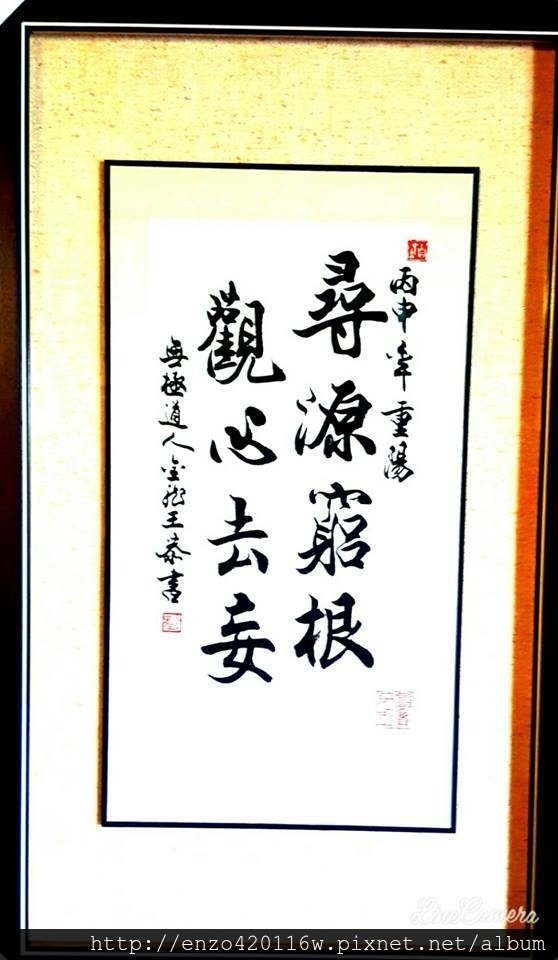 丙申年重陽
尋源窮根
觀心去妄
無極道人金龍王泰書
LiveCamera
http://enzo420116w.pixnet.net/album